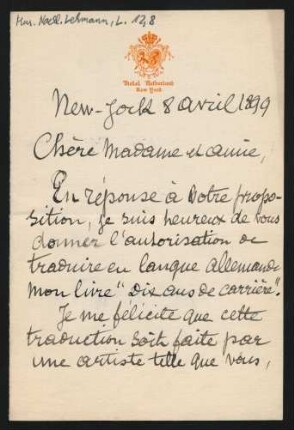 Mus. Nachl. Lehmann, L. 1,2,8
Hotel Netherland
New York
New-York 8 Avril 1899
Chère Madame et amie,
En réponse à votre propo-
sition, je suis heureux de vous
donner l'autorisation de
traduire en langue allemande
mon livre "Dix ans de carrière".
Je me félicite que cette
traduction soit faite par
une artiste telle que vous,